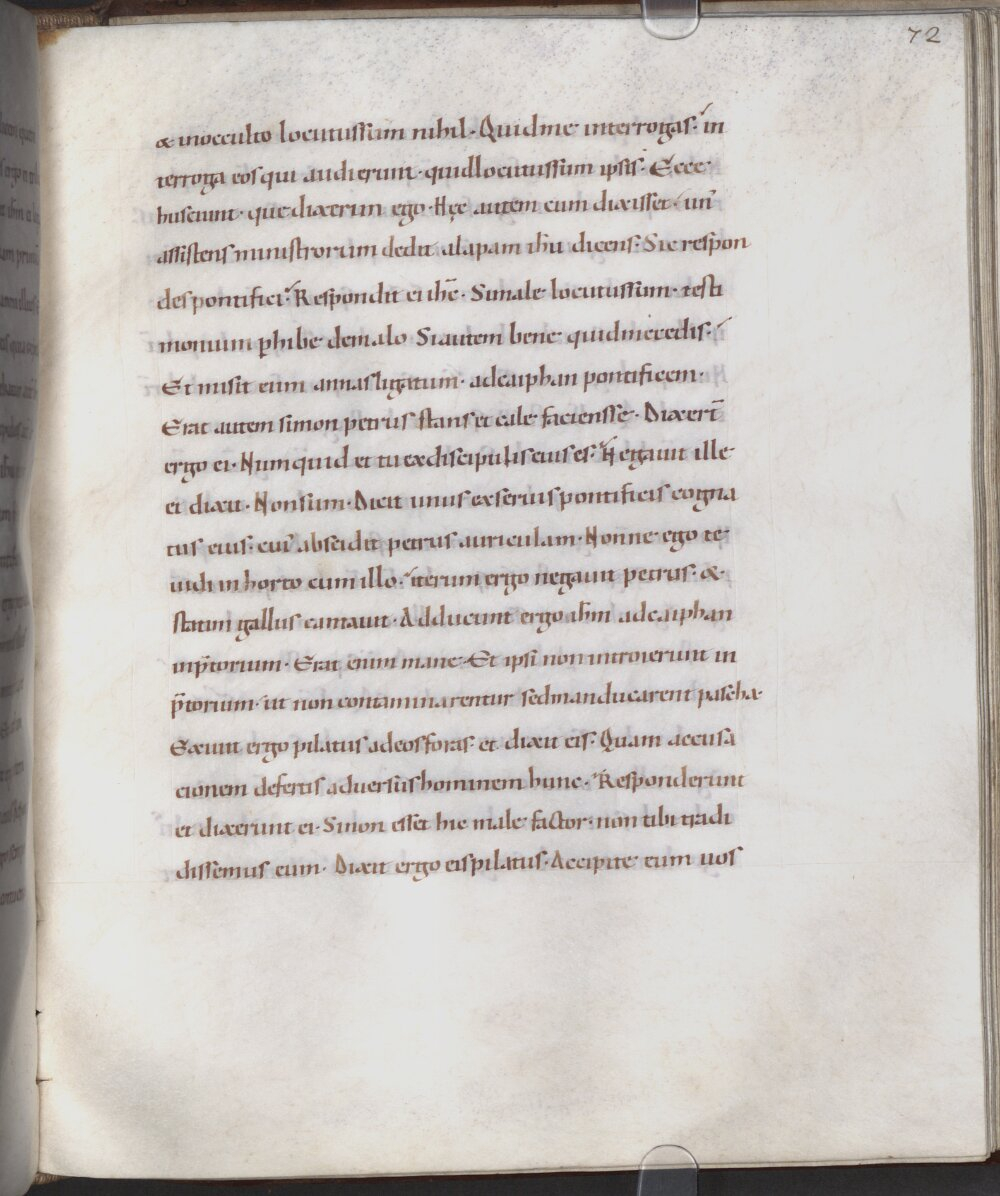 72
& inocculto locutussum nihil. Quidme interrogas. in
terroga eos qui audierunt. quidlocutussum ipsis. Ecce
hiisciunt. que dixerim ego. Hęc autem cum dixisset. un̄
assistens ministrorum dedit alapam ihū dicens. Sic respon
des pontifici. Respondit ei ihc̄. Simale locutussum. testi
monium phibe demalo Siautem bene quidmecedis.
Et misit eum annas ligatum. adcaiphan pontificem.
Erat autem simon petrus stans et cale faciensse. Dixert̄
ergo ei. Numquid et tu exdiscipulis eius es. Negauit ille
et dixit. Nonsum. Dicit unus exseruis pontificis cogna
tus eius. cui' abscidit petrus auriculam. Nonne ego te
uidi in horto cumillo. iterum ergo negauit petrus. &
statim gallus cantauit. Adducunt ergo ihm̄ adcaiphan
inp̄torium. Erat enim mane. Et ipsi non introierunt in
p̄torium. ut non contaminarentur sedmanducarent pascha.
Exiuit ergo pilatus adeosforas. et dixit eis. Quam accusa
cionem defertis aduersus hominem hunc. Responderunt
et dixerunt ei. Sinon esset hic male factor. non tibi tradi
dissemus eum. Dixit ergo eispilatus. Accipite eum uos